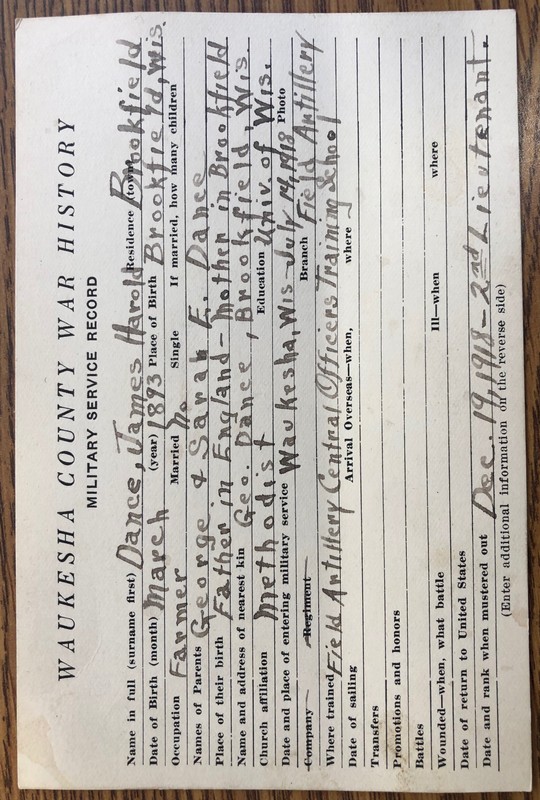 WAUKESHA COUNTY WAR HISTORY
MILITARY SERVICE RECORD
Name in full (surname first) Dance, James Harold Residence (town) Brookfield
Date of Birth (month) March (year) 1893 Place of Birth Brookfield, Wis.
Occupation Farmer Married No Single If married, how many children
Names of Parents George & Sarah E. Dance
Place of their birth Father in England - Mother in Brookfield
Name and address of nearest kin Geo. Dance, Brookfield, Wis.
Church affiliation Methodist Education Univ. of Wis.
Date and place of entering military service Waukesha, Wis - July 14, 1918 Photo
Company Regiment Branch Field Artillery
Where trained Field Artillery Central Officers Training School
Date of sailing Arrival Overseas—when, where
Transfers
Promotions and honors
Battles
Wounded—when, what battle Ill—when where
Date of return to United States
Date and rank when mustered out Dec. 19, 1918 - 2nd Lieutenant.
(Enter additional information on the reverse side)